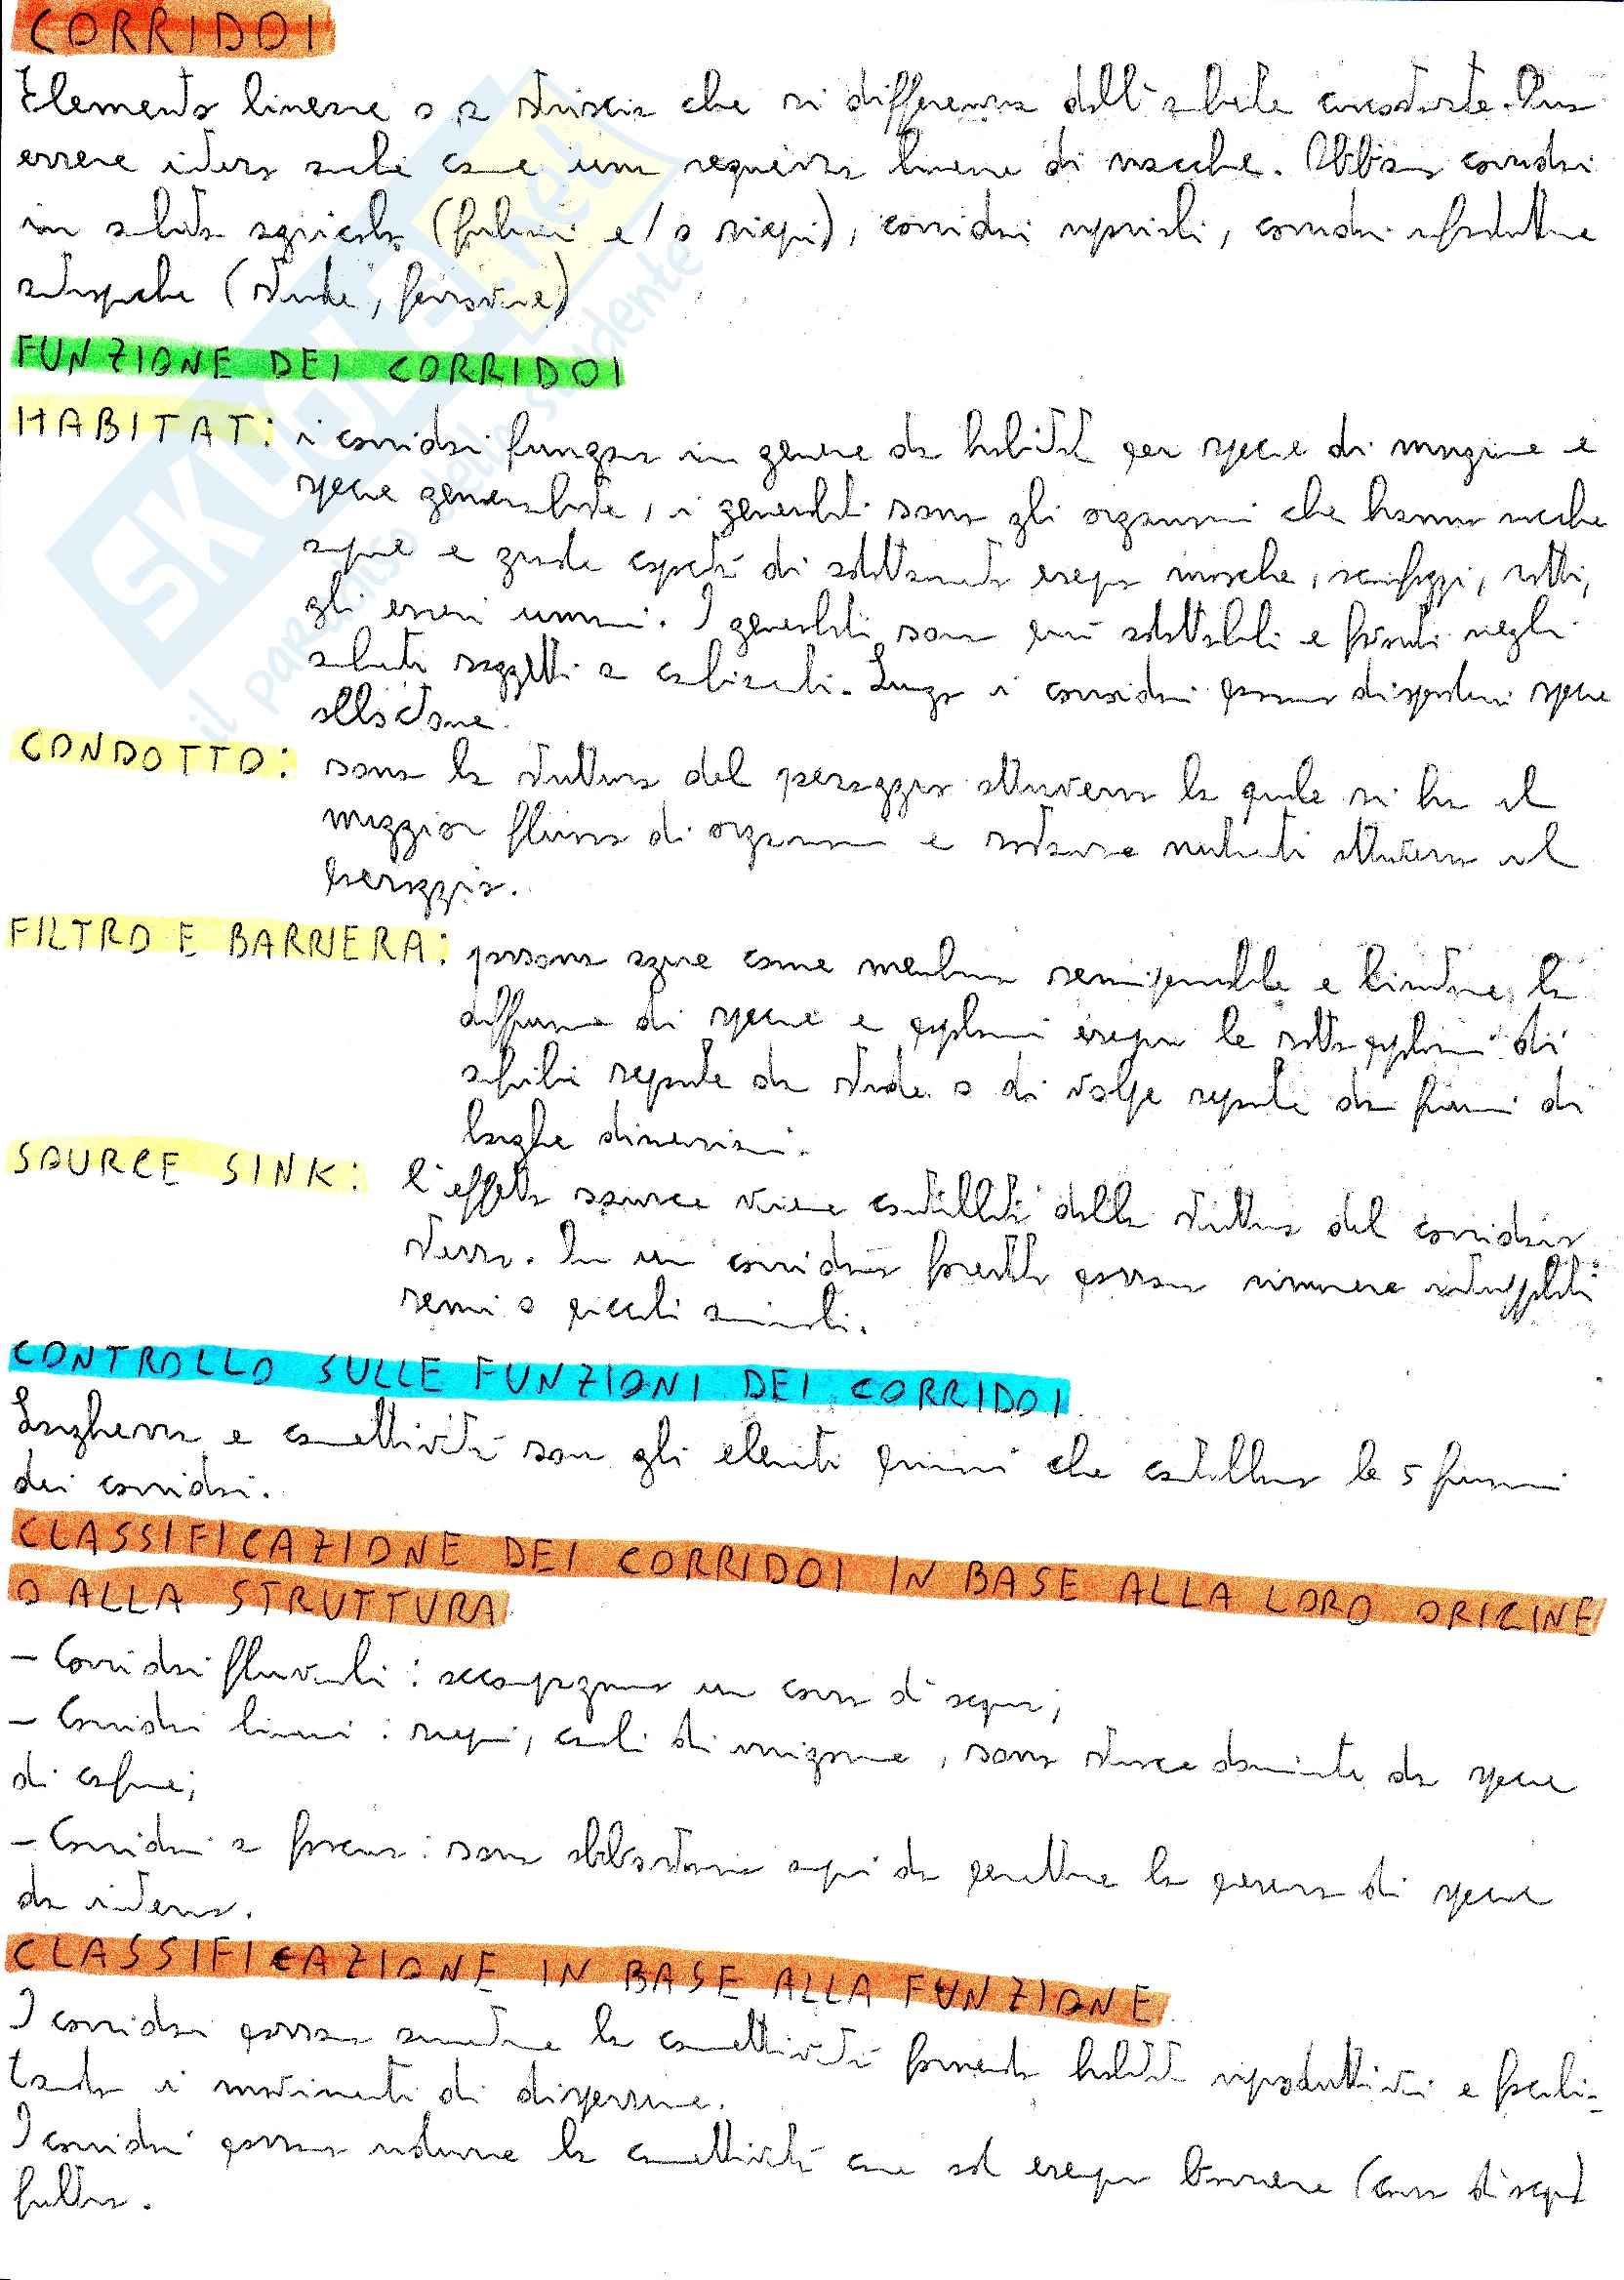 CORRIDOI
Elemento lineare o a striscia che si differenzia dall'ambiente circostante. Può
essere inteso anche come una sequenza lineare di macchie. Abbiamo corridoi
in ambito agricolo (filari e/o siepi), corridoi ripariali, corridoi infrastrutture
antropiche (strade, ferrovie)
FUNZIONE DEI CORRIDOI
HABITAT: i corridoi fungono in genere da habitat per specie di margine e
specie generaliste, i generalisti sono gli organismi che hanno nicchie
ampie e grande capacità di adattamento esempio mosche, scarafaggi, ratti,
gli esseri umani. I generalisti sono più adattabili e favoriti negli
ambienti soggetti a cambiamenti. Lungo i corridoi possono disperdersi specie
alloctone.
CONDOTTO: sono la struttura del paesaggio attraverso la quale si ha il
maggior flusso di organismi e sostanze nutrienti attraverso il
paesaggio.
FILTRO E BARRIERA: possono agire come membrana semipermeabile e limitare la
diffusione di specie e popolazioni esempio le sottopopolazioni di
anfibi separate da strade o di volpe separate da fiumi di
larghe dimensioni.
SOURCE SINK: l'effetto source viene controllato dalla struttura del corridoio
stesso. In un corridoio forestale possono rimanere intrappolati
semi o piccoli animali.
CONTROLLO SULLE FUNZIONI DEI CORRIDOI
Larghezza e connettività sono gli elementi primari che controllano le 5 funzioni
dei corridoi.
CLASSIFICAZIONE DEI CORRIDOI IN BASE ALLA LORO ORIGINE
O ALLA STRUTTURA
- Corridoi fluviali: accompagnano un corso d'acqua;
- Corridoi lineari: siepi, canali di irrigazione, sono strisce dominate da specie
di confine;
- Corridoi a fascia: sono abbastanza ampi da permettere la presenza di specie
da interno.
CLASSIFICAZIONE IN BASE ALLA FUNZIONE
I corridoi possono aumentare la connettività fornendo habitat riproduttivi e facili-
tando i movimenti di dispersione.
I corridoi possono ridurre la connettività come ad esempio barriere (corso d'acqua)
filtro.